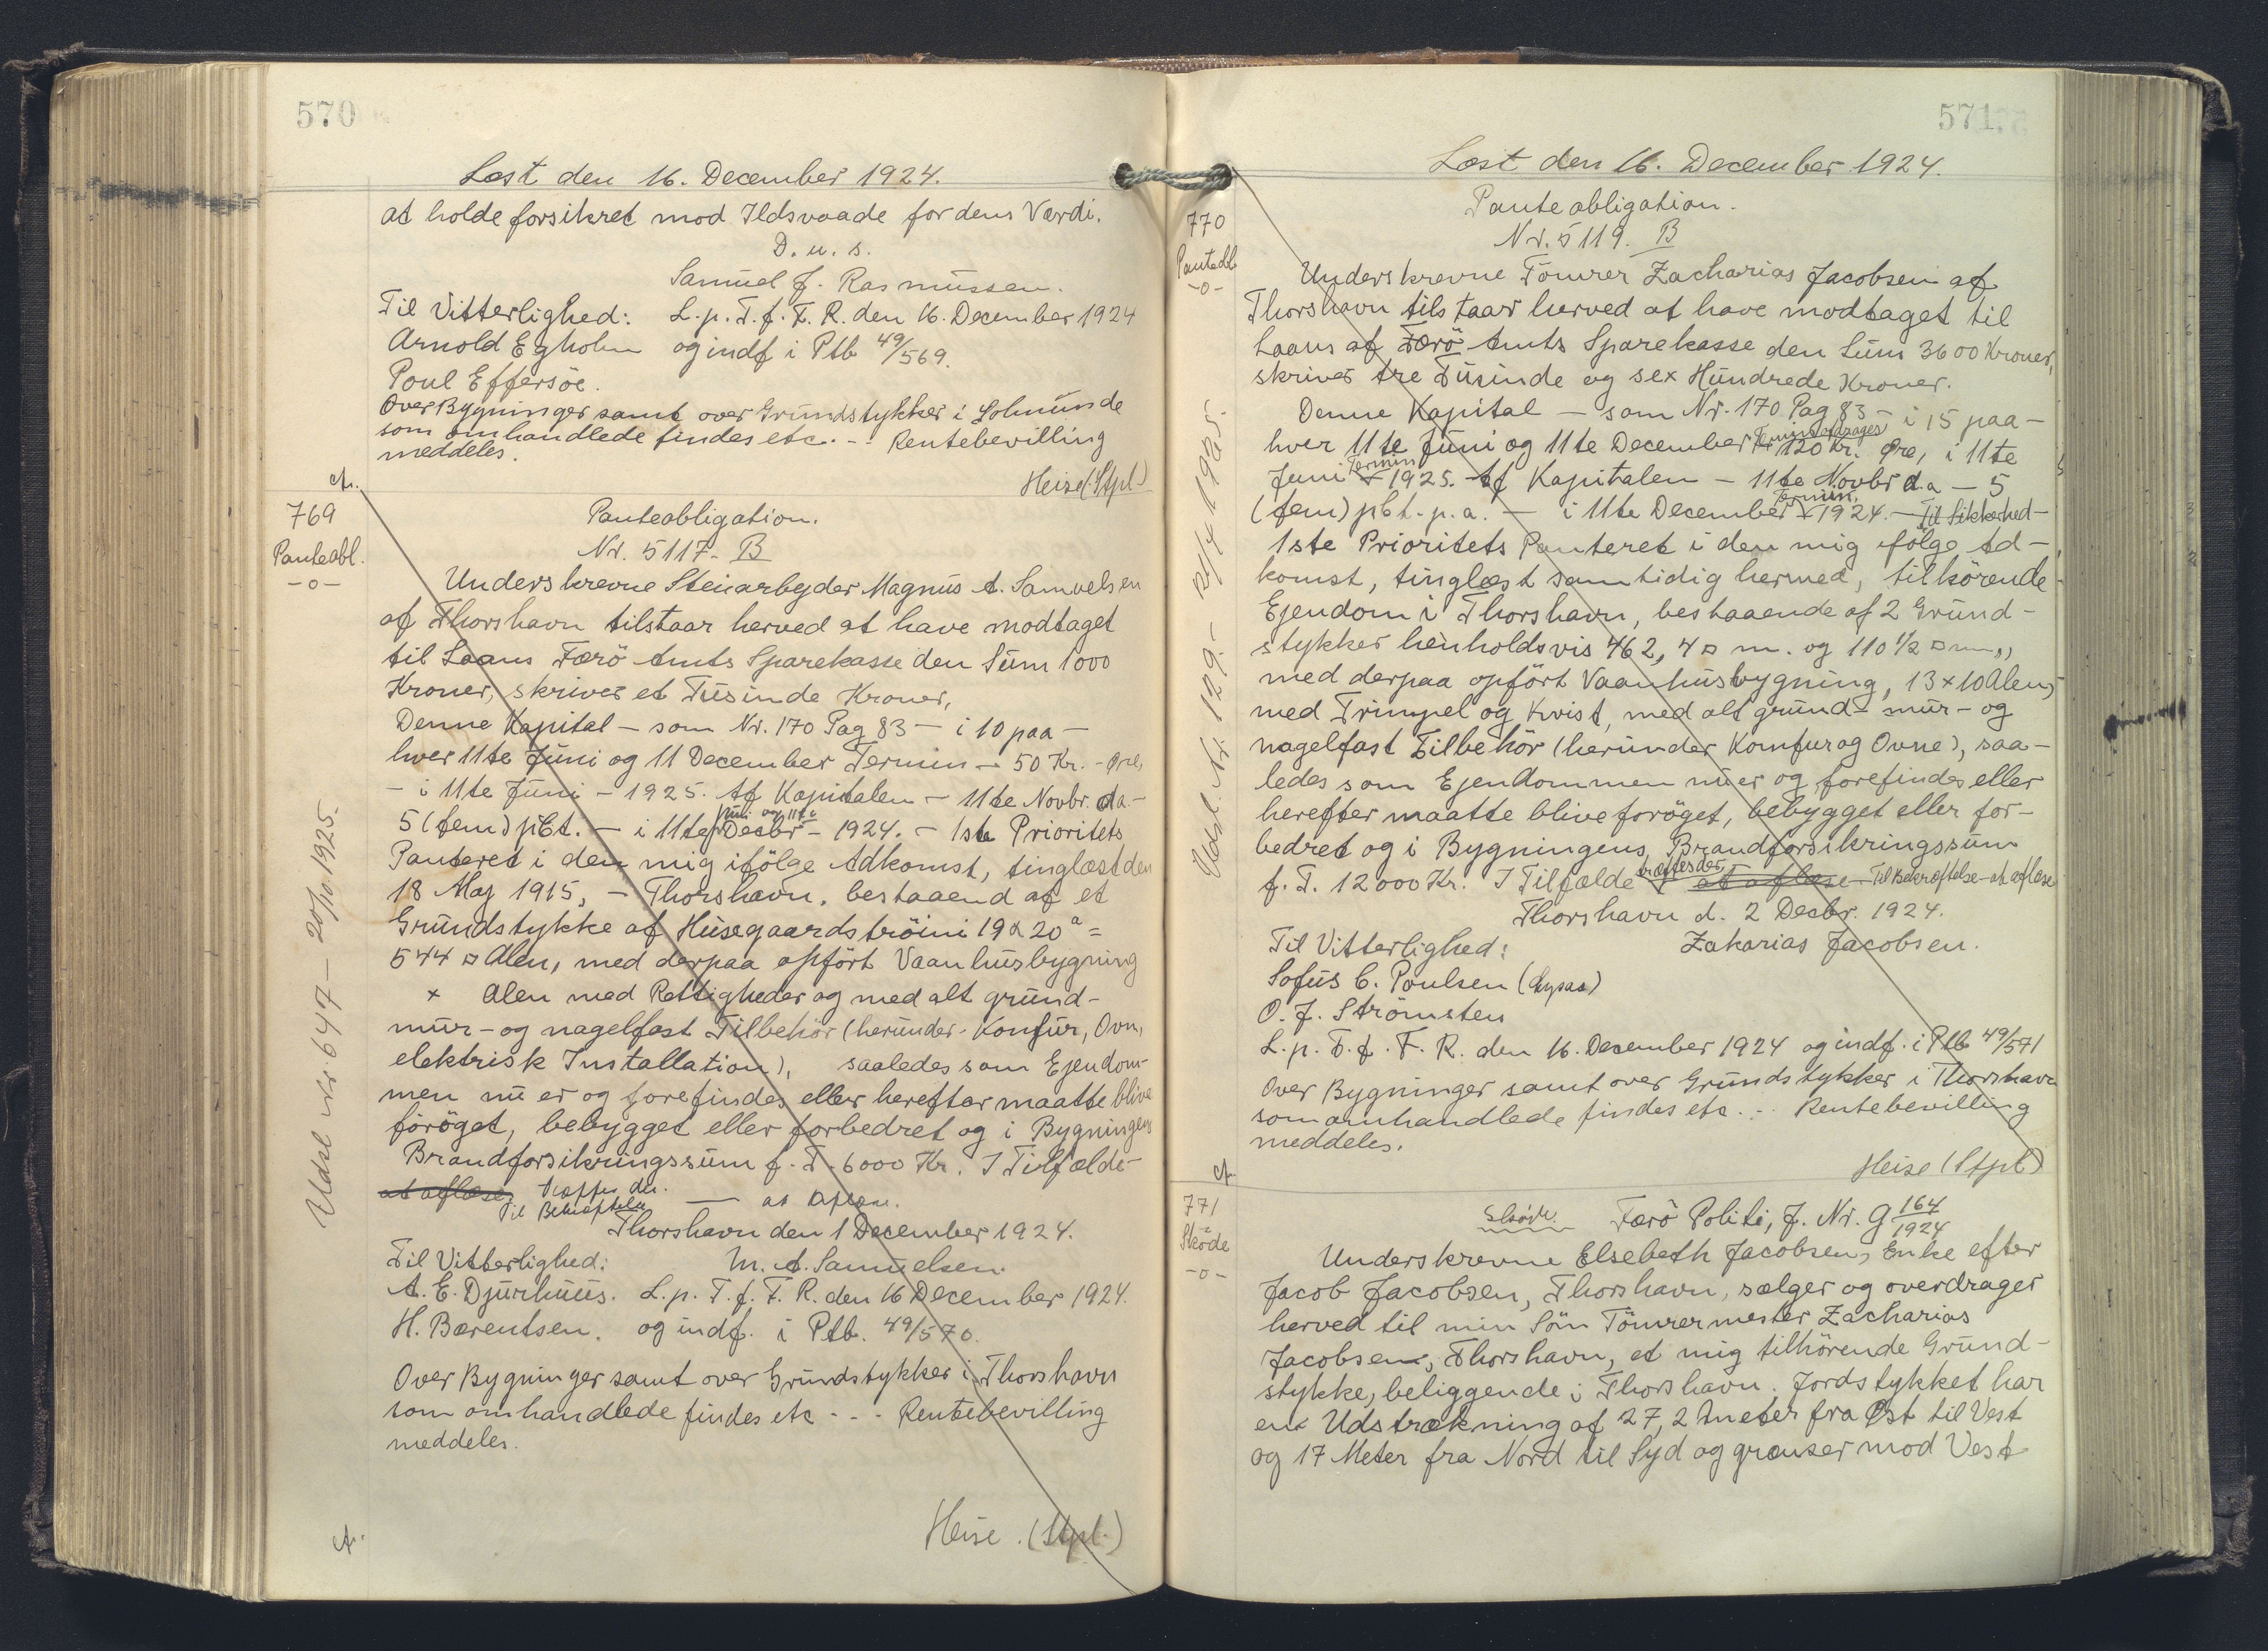 570
Læst den 16. December 1924.
at holde forsikret mod Ildsvaade for dens Værdi.
D. u. s.
Samuel J. Rasmussen.
Til Vitterlighed: L. p. T. f. F. R. den 16. December 1924
Arnold Egholm og indf i Ptb 49/569.
Poul Effersöe.
Over Bygninger samt over Grundstykker i
som omhandlede findes etc. -- Rentebevilling
meddeles.
Heise (Stpl.)
769
Panteabl.
-o-
Panteobligation.
Nr. 5117- B
Underskrevne Stenarbejder Magnus A. Samuelsen
af Thorshavn tilstaar herved at have modtaget
til Laans Færö Amts Sparekasse den Sum 1000
Kroner, skriver et Tusinde Kroner,
Denne Kapital - som Nr. 170 Pag 83 - i 10 paa -
hver 11te Juni og 11 December Termin - 50 Kr. - Øre,
- i 11te Juni - 1925. Af Kapitalen - 11te Novbr. d.a. -
Juni og 11te
5 (fem) pCt. - i 11te Decbr - 1924. - 1ste Prioritets
Panteret i den mig ifölge Adkomst, tinglæst den
18 Maj 1915, - Thorshavn, bestaaend af et
Grundstykke af Husegaardströini 19 x 20 a =
544 □ Alen, med derpaa opfört Vaanhusbygning
x Alen med Rettigheder og med alt grund-
mur- og nagelfast Tilbehör (herunder Komfur, Ovn,
elektrisk Installation), saaledes som Ejendom-
men nu er og forefindes eller herefter maatte blive
foröget, bebygget eller forbedret og i Bygningens
Brandforsikringssum f. T. 6000 Kr. I Tilfælde -
at aflæse træffes der.
Til Bekræftelse - at aflæse.
Thorshavn den 1 December 1924.
Til Vitterlighed: M. A. Samuelsen.
A. E. Djurhuus. L. p. T. f. F. R. den 16 December 1924.
H. Bærentsen. og indf. i Ptb. 49/570.
Over Bygninger samt over Grundstykker i Thorshavn
som omhandlede findes etc - - - Rentebevilling
meddeles.
Heise. (Stpl.)
Udsl. Nr. 647 - 20/10 1925.
571
Læst den 16. December 1924.
770
Panteobl
-o-
Panteobligation.
Nr. 5119. B
Underskrevne Tömrer Zacharias Jacobsen af
Thorshavn tilstaar herved at have modtaget til
Laans af Færö Amts Sparekasse den Sum 3600 Kroner,
skriver tre Tusinde og sex Hundrede Kroner.
Denne Kapital - som Nr. 170 Pag 83 - i 15 paa -
Termin afdrages
hver 11te Juni og 11te December 120 Kr. Øre, i 11te
Termin
Juni 1925. Af Kapitalen - 11te Novbr d.a - 5
Termin.
(fem) pCt. p. a. - i 11te December 1924. - Til Sikkerhed -
1ste Prioritets Panteret i den mig ifölge Ad-
komst, tinglæst samtidig hermed, tilhörende
Ejendom i Thorshavn, bestaaende af 2 Grund-
stykker henholdsvis 462,4 □ m. og 110 1/2 □ m.,
med derpaa opfört Vaanhusbygning, 13 x 10 Alen,
med Trimpel og Kvist, med alt grund- mur- og
nagelfast Tilbehör (herunder Komfur og Ovne), saa-
ledes som Ejendommen nu er og forefindes eller
herefter maatte blive foröget, bebygget eller for-
bedret og i Bygningens Brandforsikringssum
træffes der
f. T. 12000 Kr. I Tilfælde at aflæse - Til Bekræftelse - at aflæse
Thorshavn d. 2 Decbr. 1924.
Til Vitterlighed: Zakarias Jacobsen.
Sofus C. Poulsen
O. J. Strömsten
L. p. T. f. F. R. den 16. December 1924 og indf. i Ptb 49/571
Over Bygninger samt over Grundstykker i Thorshavn
som omhandlede findes etc. -- Rentebevilling
meddeles.
Heise (Stpl)
Udsl. Nr. 129 -
771
Sköde
-o-
Sköde Færö Politi, J. Nr. G 164/1924
Underskrevne Elsebeth Jacobsen, Enke efter
Jacob Jacobsen, Thorshavn, sælger og overdrager
herved til min Sön Tömrermester Zacharias
Jacobsen, Thorshavn, et mig tilhörende Grund-
stykke, beliggende i Thorshavn. Jordstykket har
en Udstrækning af 27,2 Meter fra Øst til Vest
og 17 Meter fra Nord til Syd og grænser mod Vest